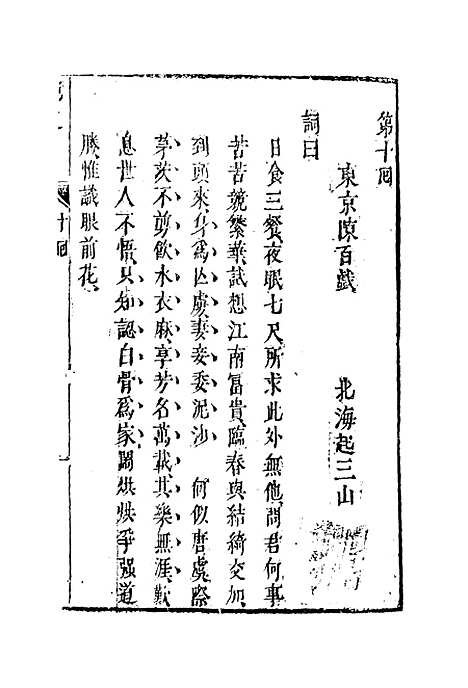 第十回
東京陳百戲　北海起三山
詞曰
日食三餐夜眠七尺所求此外無他問君何事
苦苦競繁華試想江南富貴臨春與結綺交加
到頭來身爲亡虜妻妾委泥沙　何似唐虞際
茅茨不剪飲水衣麻享芳名萬載其樂無涯歎
息世人不悟只知認白骨爲家鬧烘烘爭强道
勝惟識眼前花
十回